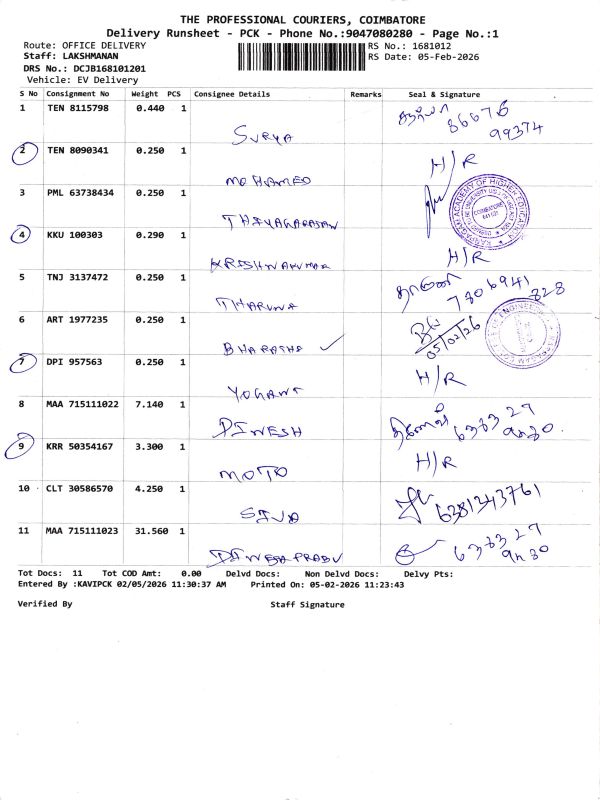 THE PROFESSIONAL COURIERS, COIMBATORE
Delivery Runsheet - PCK - Phone No.:9047080280 - Page No.:1
Route: OFFICE DELIVERY RS No.: 1681012
Staff: LAKSHMANAN RS Date: 05-Feb-2026
DRS No.: DCJB168101201
Vehicle: EV Delivery
S No Consignment No Weight PCS Consignee Details Remarks Seal & Signature
1 TEN 8115798 0.440 1 SURYA 86676
99374
2 TEN 8090341 0.250 1 MOHAMED H/R
3 PML 63738434 0.250 1 THIYAGARAJAN
4 KKU 100303 0.290 1 KRISHNAKUMAR H/R
5 TNJ 3137472 0.250 1 THARUNA 7806941
828
6 ART 1977235 0.250 1 BHARATHI ✓ 05/02/26
7 DPI 957563 0.250 1 YOGANT H/R
8 MAA 715111022 7.140 1 DINESH
9 KRR 50354167 3.300 1 MOTO H/R
10 CLT 30586570 4.250 1 SIVA 6381343761
11 MAA 715111023 31.560 1 DINESH PRABU
Tot Docs: 11 Tot COD Amt: 0.00 Delvd Docs: Non Delvd Docs: Delvy Pts:
Entered By :KAVIPCK 02/05/2026 11:30:37 AM Printed On: 05-02-2026 11:23:43
Verified By Staff Signature